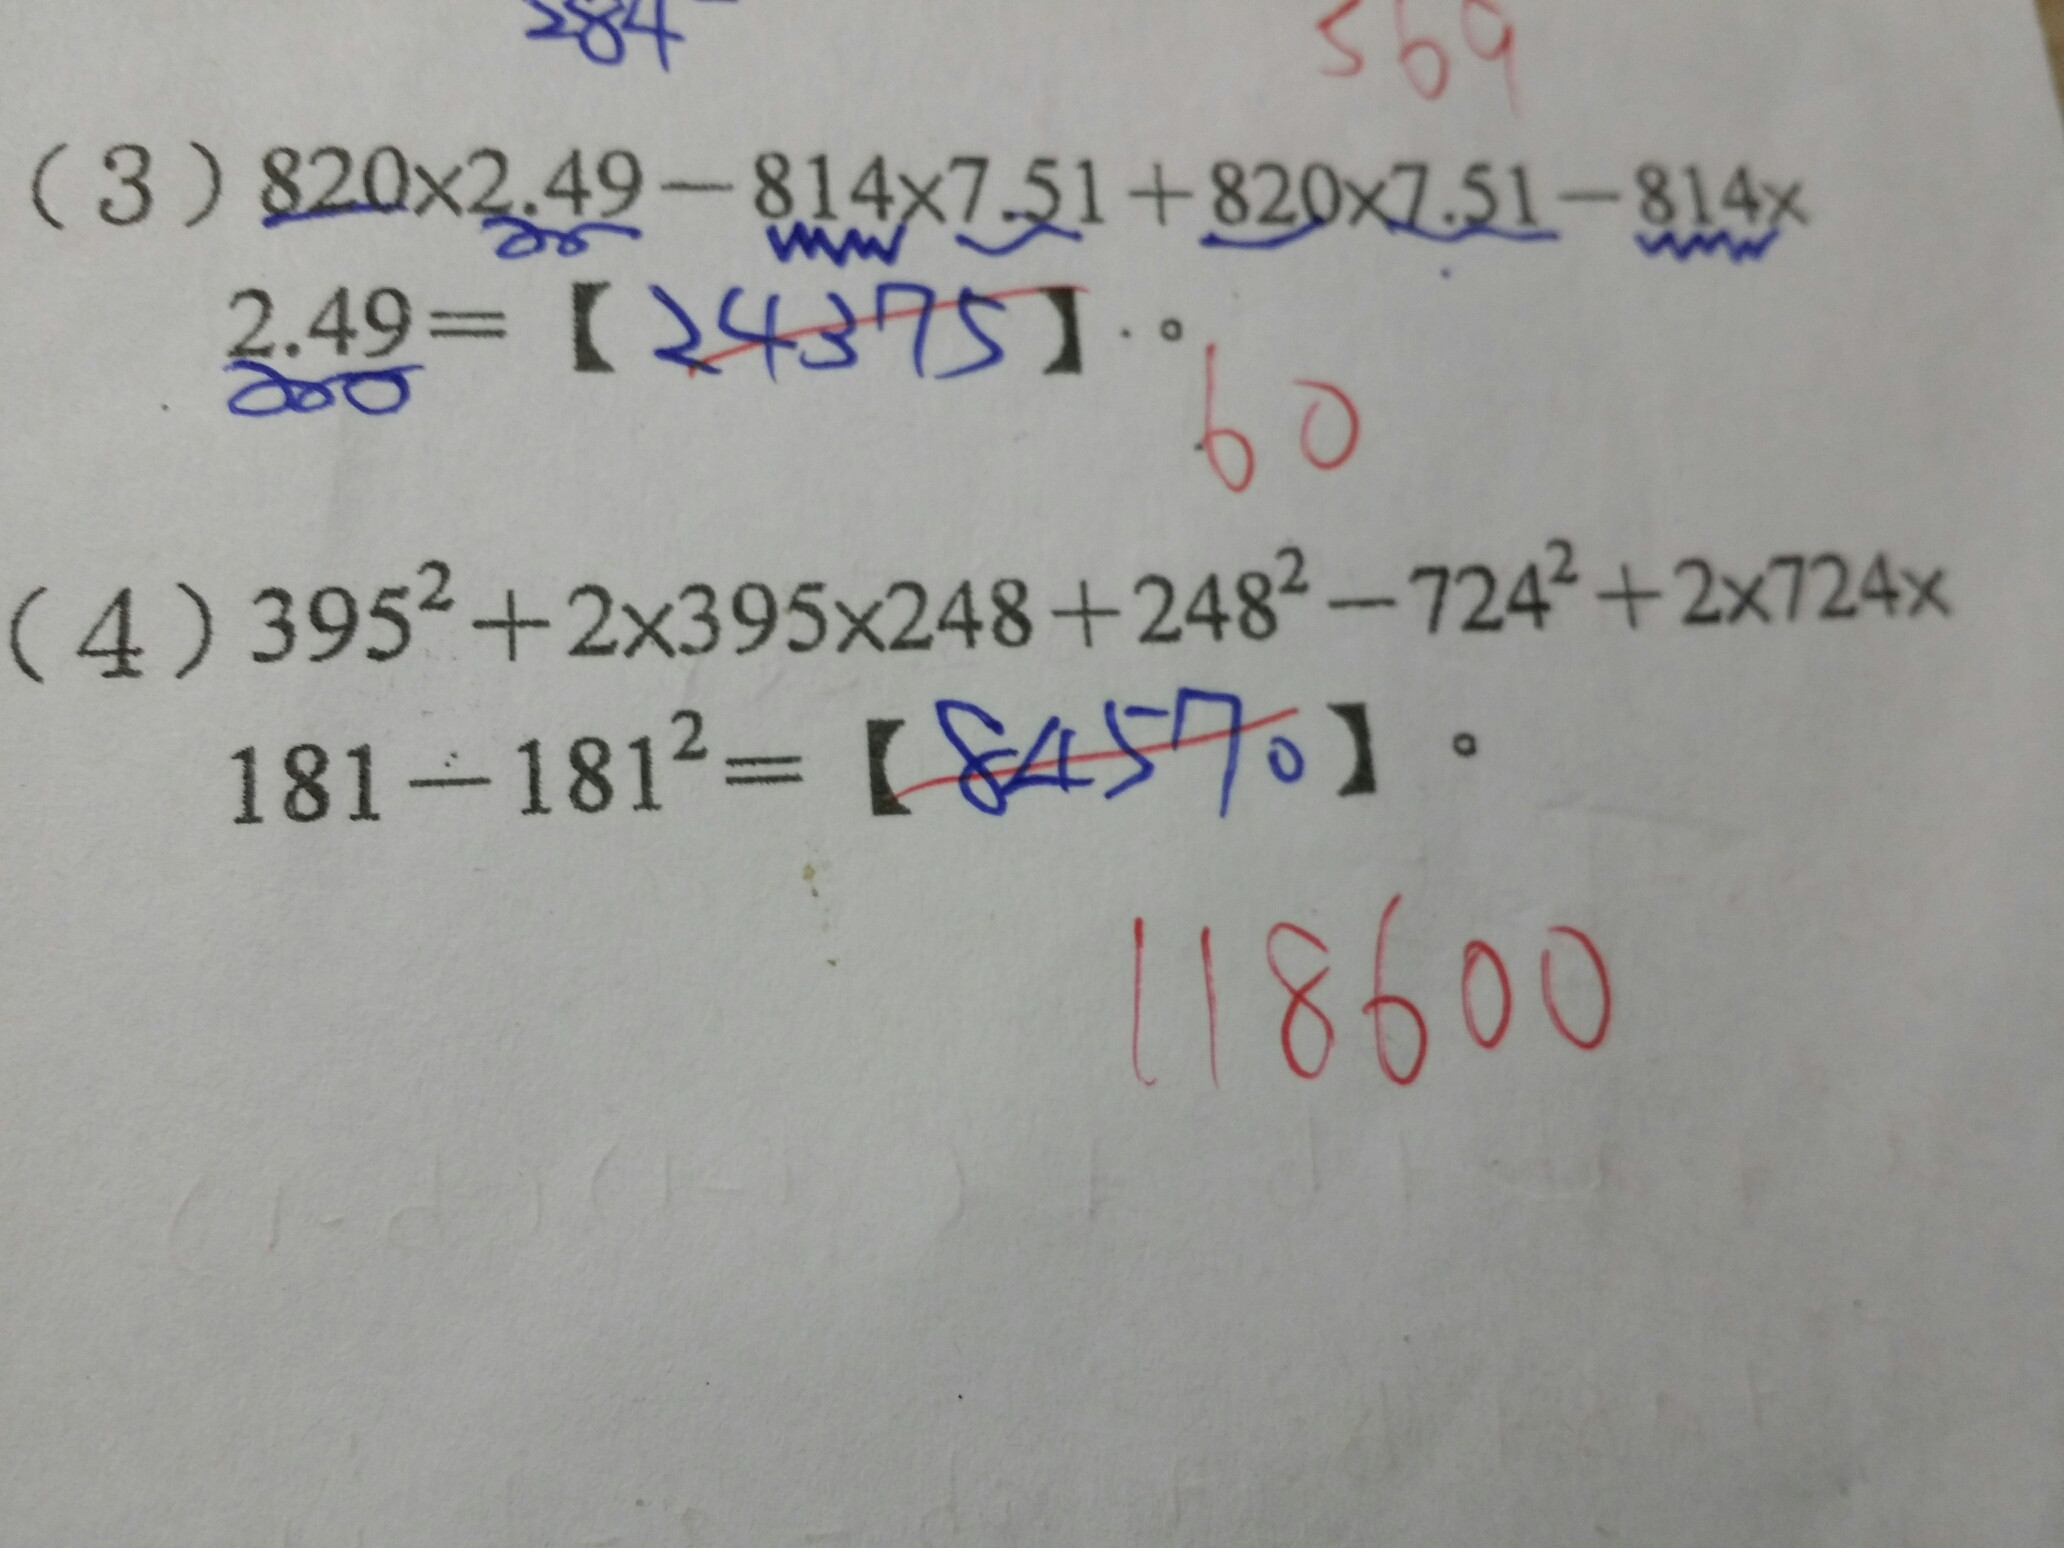 284
569
(3) 820×2.49－814×7.51＋820×7.51－814×
2.49＝【24375】。
60
(4) 395²＋2×395×248＋248²－724²＋2×724×
181－181²＝【84570】。
118600